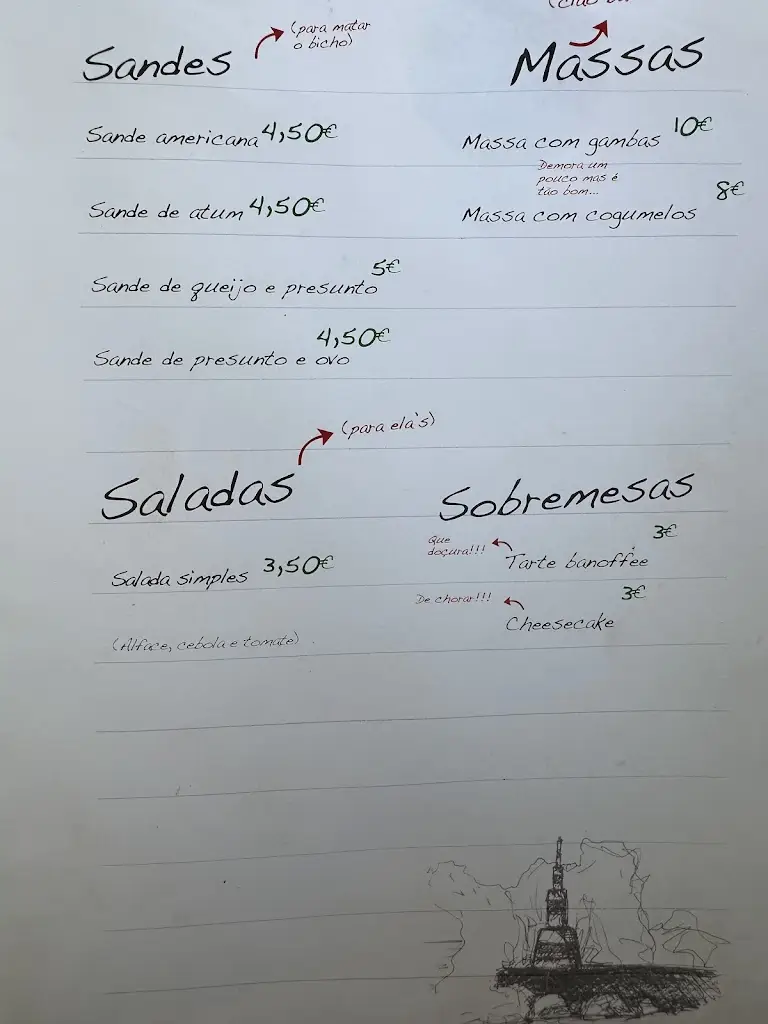 Sandes
(para matar
o bicho)
Sande americana 4,50€
Sande de atum 4,50€
5€
Sande de queijo e presunto
4,50€
Sande de presunto e ovo
Massas
10€
Massa com gambas
Demora um
pouco mas é
tão bom...
8€
Massa com cogumelos
(para ela's)
Saladas
Salada simples 3,50€
(Alface, cebola e tomate)
Sobremesas
3€
Que
doçura!!!
Tarte banoffee
3€
De chorar!!!
Cheesecake